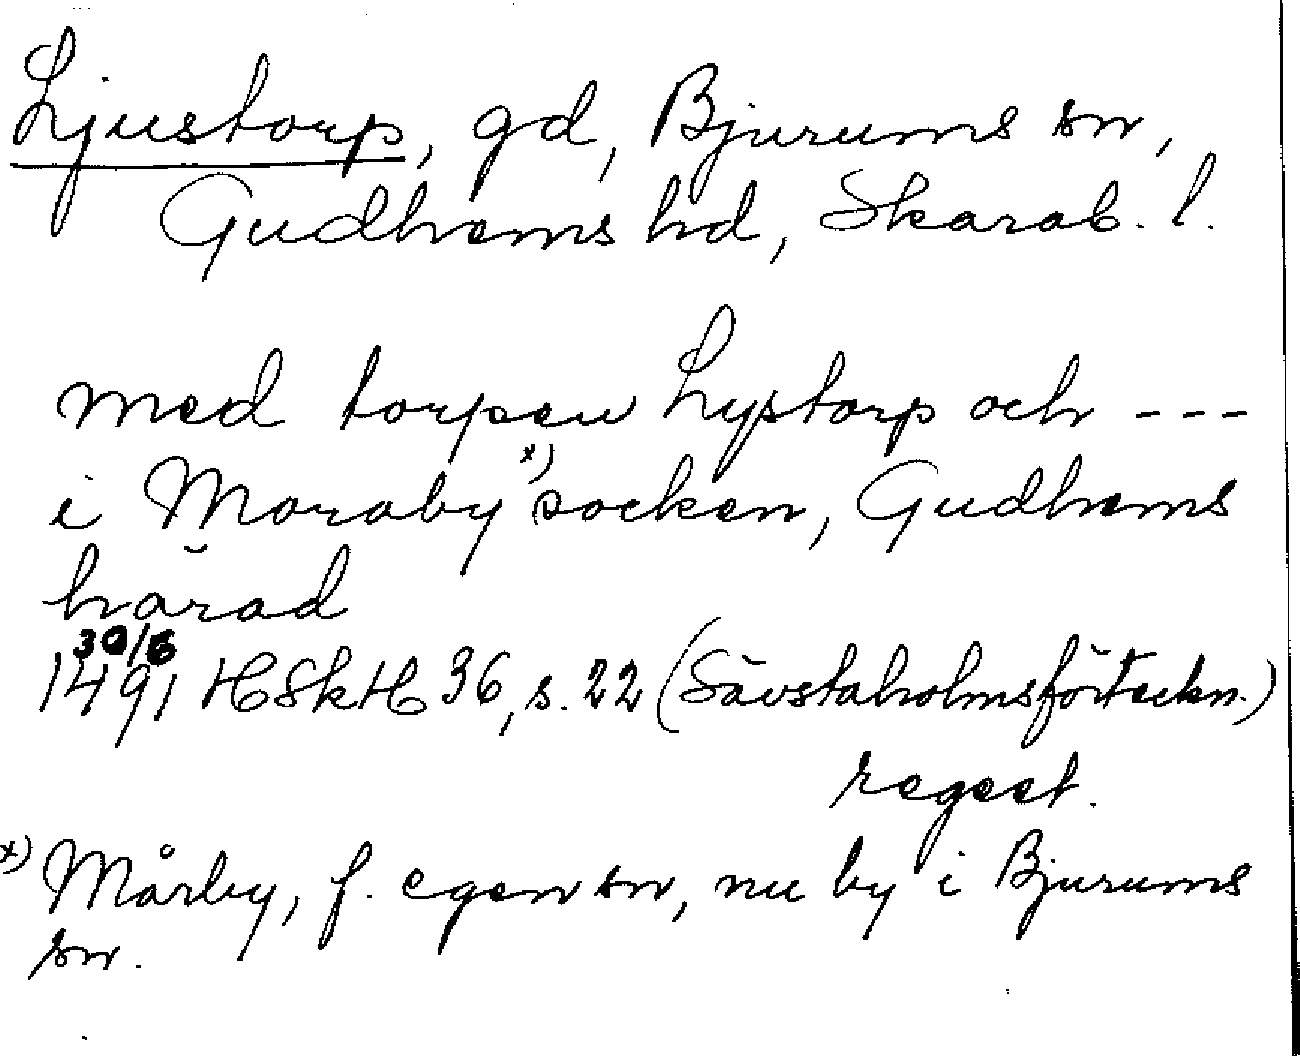 Ljustorp, gd, Bjurums sn,
Gudhems hd, Skarab. l.
med torpen Lystorp och ---
i Moraby x) socken, Gudhems
härad
30/6
1491 HSkH 36, s. 22 (Sävstaholmsförteckn.)
regest.
x) Mårby, f. egen sn, nu by i Bjurums
sn.